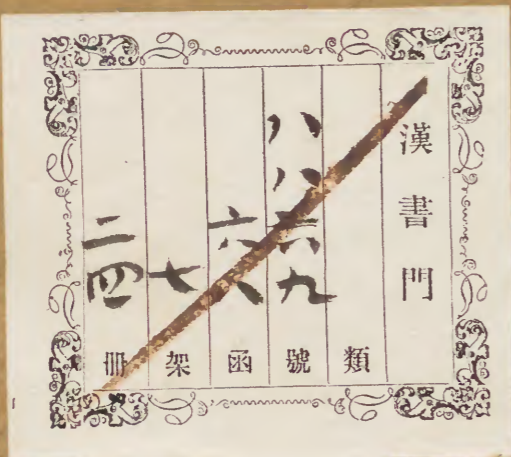 漢書門
類
八八六九號
六八函
七架
二四冊